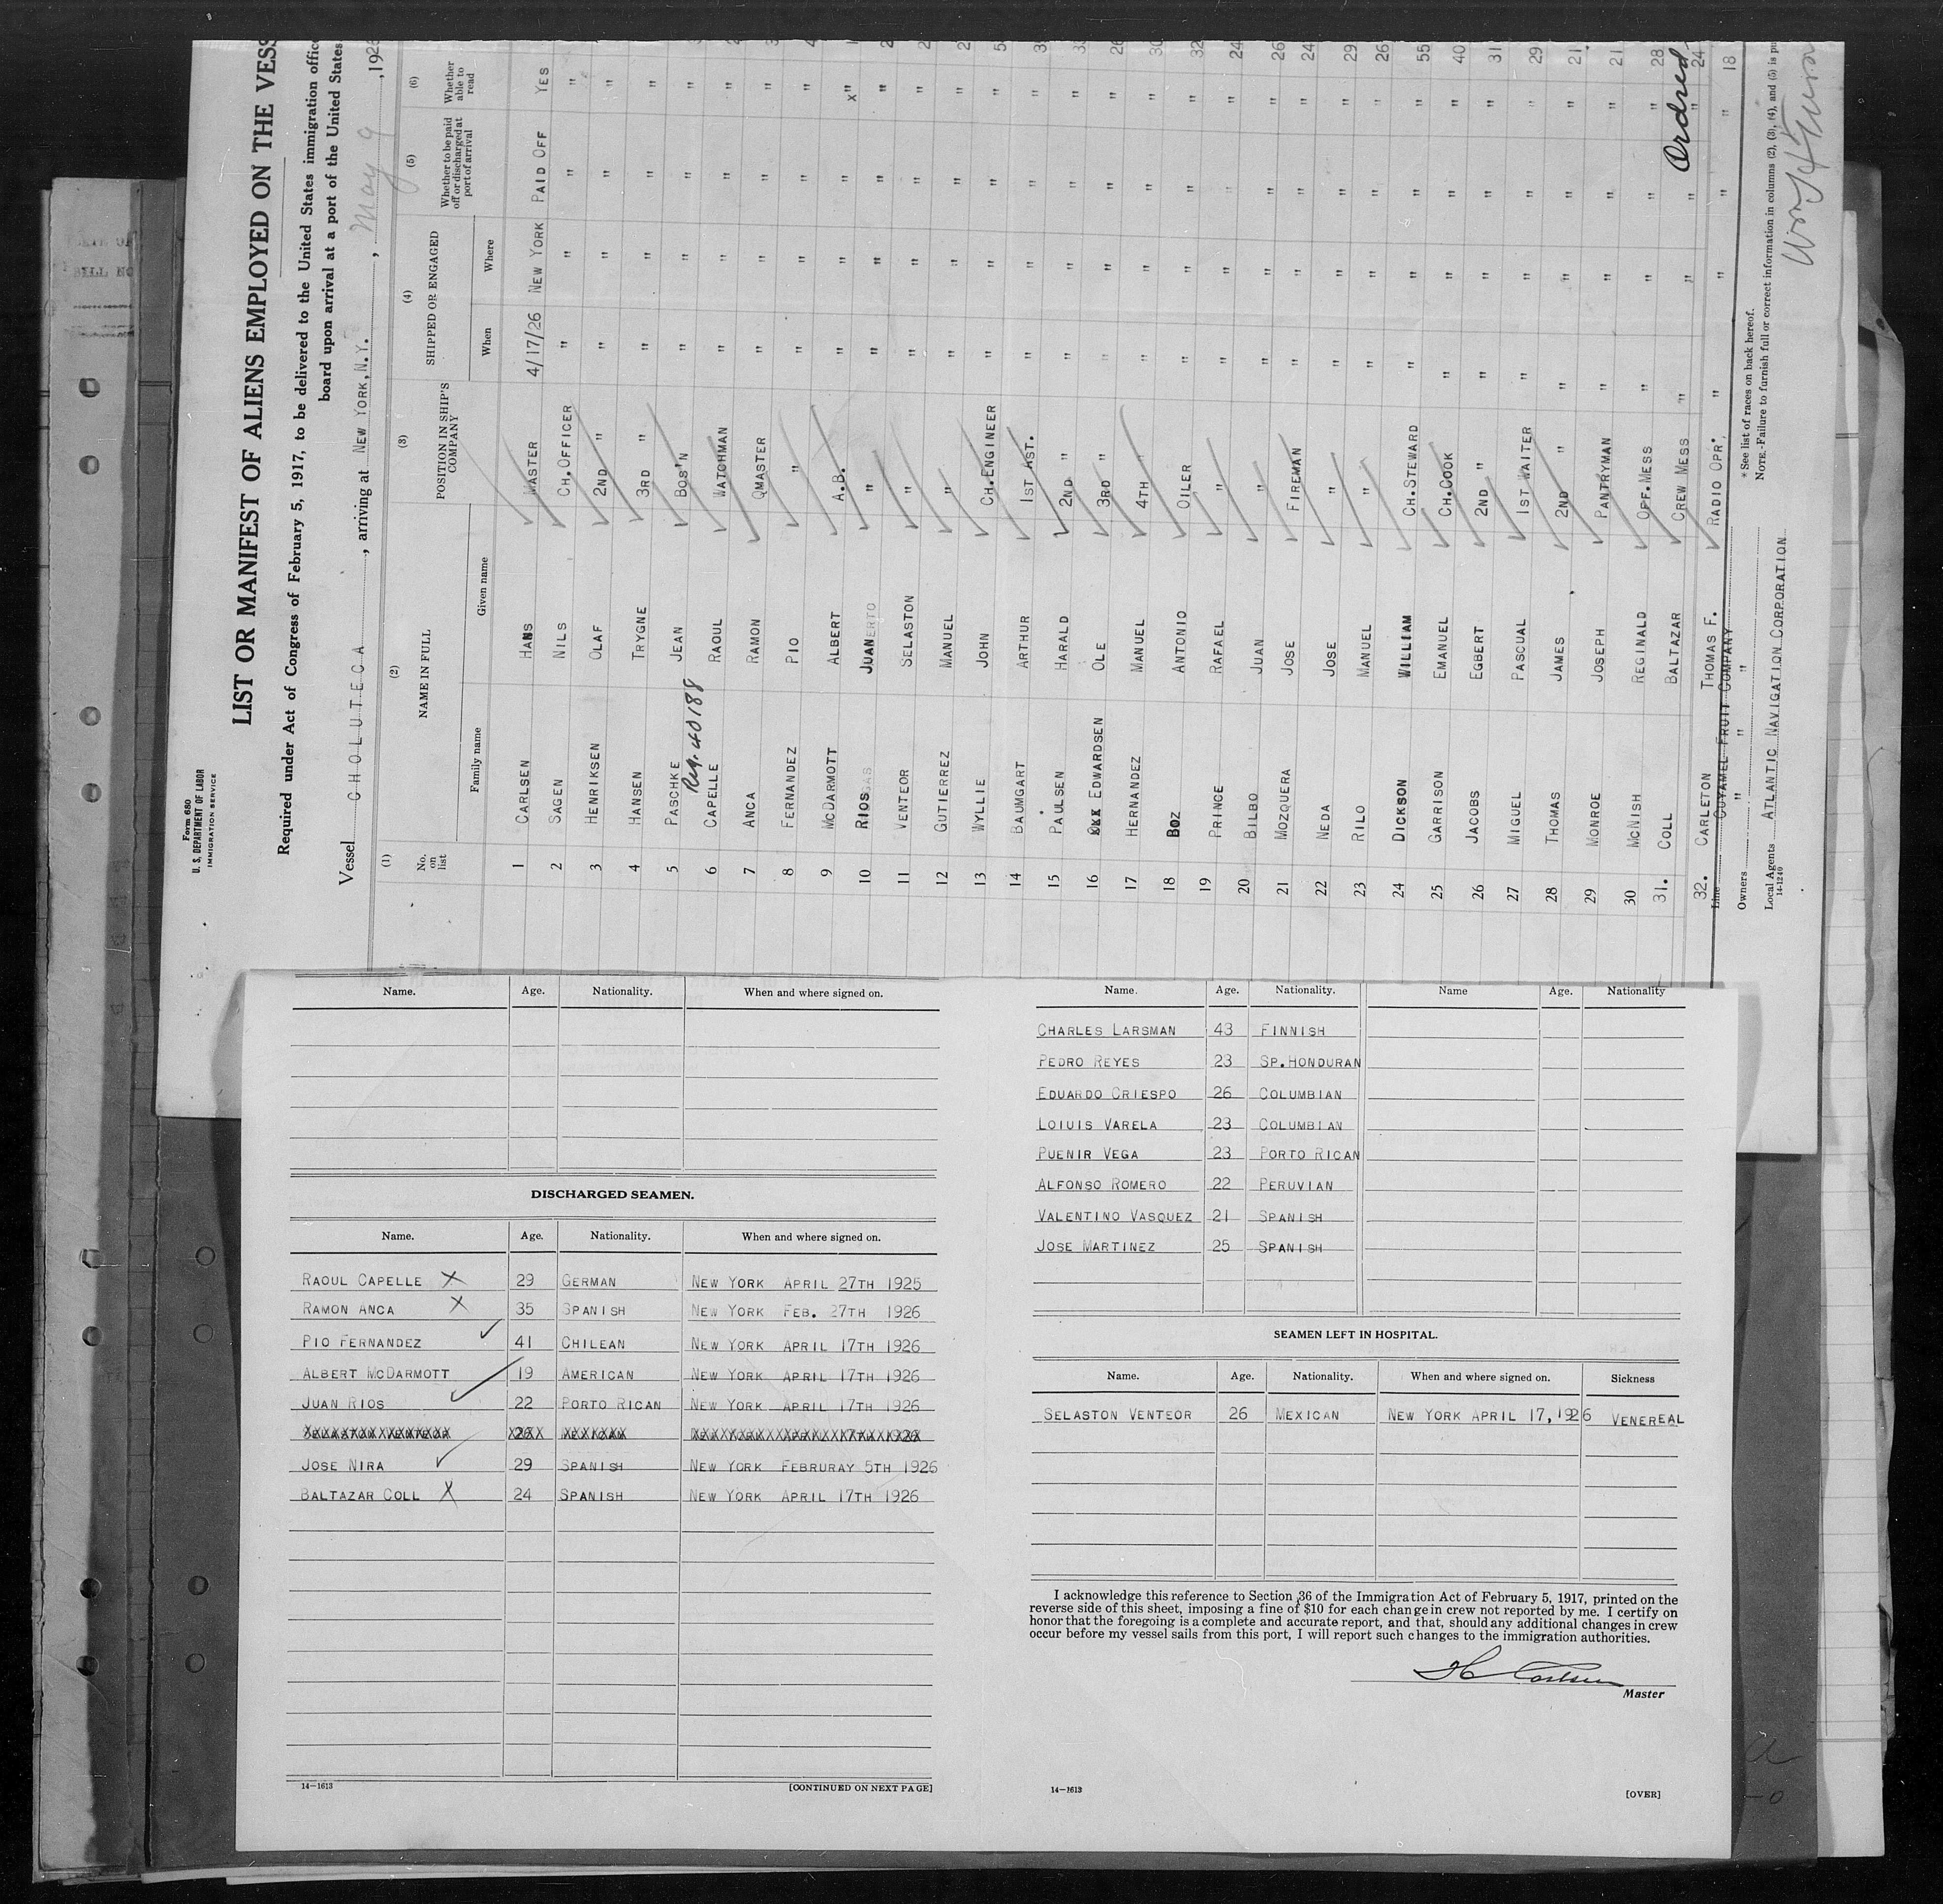 Form 680
U. S. DEPARTMENT OF LABOR
IMMIGRATION SERVICE
LIST OR MANIFEST OF ALIENS EMPLOYED ON THE VESS
Required under Act of Congress of February 5, 1917, to be delivered to the United States immigration offic
board upon arrival at a port of the United States
Vessel CHOLUTECA, arriving at NEW YORK, N.Y., May 9, 192
(1) (2) (3) (4) (5) (6)
No. on list NAME IN FULL POSITION IN SHIP'S COMPANY SHIPPED OR ENGAGED Whether to be paid off or discharged at port of arrival Whether able to read
Family name Given name When Where
1 CARLSEN HANS MASTER 4/17/26 NEW YORK PAID OFF YES
2 SAGEN NILS CH.OFFICER " " " " 2
3 HENRIKSEN OLAF 2ND " " " " "
4 HANSEN TRYGNE 3RD " " " " "
5 PASCHKE JEAN BOS'N " " " "
Reg. 40188
6 CAPELLE RAOUL WATCHMAN " " " "
7 ANCA RAMON QMASTER " " " "
8 FERNANDEZ PIO " " " " "
9 MCDARMOTT ALBERT A.B. " " " x"
10 RIOS JUAN " " " " "
11 VENTEOR SELASTON " " " " "
12 GUTIERREZ MANUEL " " " " "
13 WYLLIE JOHN CH.ENGINEER " " " "
14 BAUMGART ARTHUR 1ST AST. " " " "
15 PAULSEN HARALD 2ND " " " " "
16 EDWARDSEN OLE 3RD " " " " " 26
17 HERNANDEZ MANUEL 4TH " " " " " 30
18 BOZ ANTONIO OILER " " " " 32
19 PRINCE RAFAEL " " " " " 24
20 BILBO JUAN " " " " " 26
21 MOZQUERA JOSE FIREMAN " " " " 24
22 NEDA JOSE " " " " " 29
23 RILO MANUEL " " " " " 26
24 DICKSON WILLIAM CH.STEWARD " " " " 55
25 GARRISON EMANUEL CH.COOK " " " " 40
26 JACOBS EGBERT 2ND " " " " " 31
27 MIGUEL PASCUAL 1ST WAITER " " " " 29
28 THOMAS JAMES 2ND " " " " " 21
29 MONROE JOSEPH PANTRYMAN " " " " 21
30 MCNISH REGINALD OFF.MESS " " " " 28
31. COLL BALTAZAR CREW MESS " " " " 24
32. CARLETON THOMAS F. RADIO OPR. " " " " 18
Line CUYAMEL FRUIT COMPANY
Owners " " "
Local Agents ATLANTIC NAVIGATION CORPORATION
14-1240
* See list of races on back hereof.
NOTE.-Failure to furnish full or correct information in columns (2), (3), (4), and (5) is pu
Name. Age. Nationality. When and where signed on.
DISCHARGED SEAMEN.
Name. Age. Nationality. When and where signed on.
RAOUL CAPELLE X 29 GERMAN NEW YORK APRIL 27TH 1925
RAMON ANCA X 35 SPANISH NEW YORK FEB. 27TH 1926
PIO FERNANDEZ 41 CHILEAN NEW YORK APRIL 17TH 1926
ALBERT MCDARMOTT 19 AMERICAN NEW YORK APRIL 17TH 1926
JUAN RIOS 22 PORTO RICAN NEW YORK APRIL 17TH 1926
JOSE NIRA 29 SPANISH NEW YORK FEBRURAY 5TH 1926
BALTAZAR COLL X 24 SPANISH NEW YORK APRIL 17TH 1926
14-1613
[CONTINUED ON NEXT PAGE]
Name. Age. Nationality. Name Age. Nationality
CHARLES LARSMAN 43 FINNISH
PEDRO REYES 23 SP.HONDURAN
EDUARDO CRIESPO 26 COLUMBIAN
LOIUIS VARELA 23 COLUMBIAN
PUENIR VEGA 23 PORTO RICAN
ALFONSO ROMERO 22 PERUVIAN
VALENTINO VASQUEZ 21 SPANISH
JOSE MARTINEZ 25 SPANISH
SEAMEN LEFT IN HOSPITAL.
Name. Age. Nationality. When and where signed on. Sickness
SELASTON VENTEOR 26 MEXICAN NEW YORK APRIL 17, 1926 VENEREAL
I acknowledge this reference to Section 36 of the Immigration Act of February 5, 1917, printed on the
reverse side of this sheet, imposing a fine of $10 for each change in crew not reported by me. I certify on
honor that the foregoing is a complete and accurate report, and that, should any additional changes in crew
occur before my vessel sails from this port, I will report such changes to the immigration authorities.
H Carlsen
Master
14-1613
[OVER]